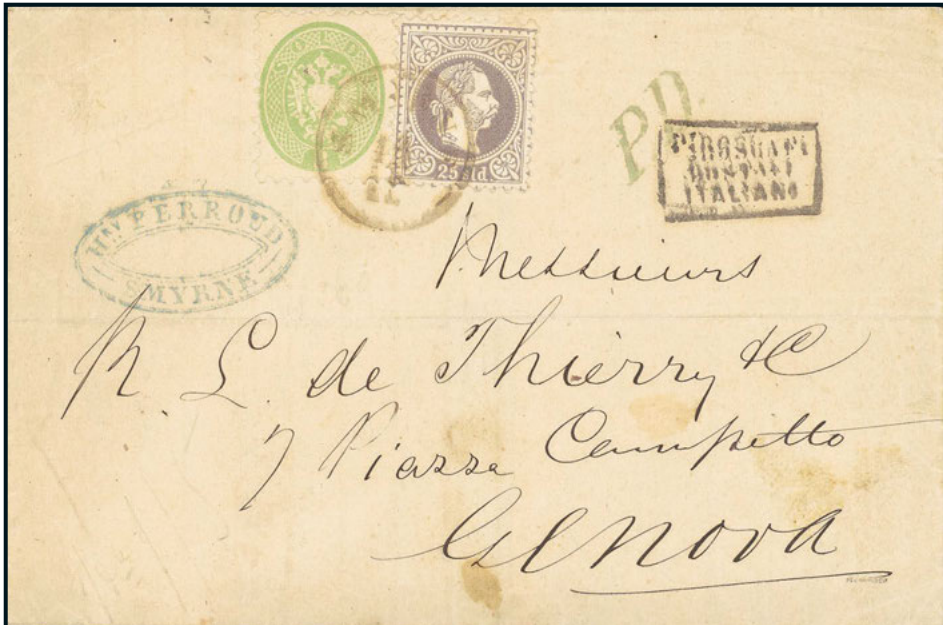 25 sld
P.D.
PIROSCAFI
POSTALI
ITALIANI
Hry PERROUD
SMYRNE
Messieurs
R L de Thierry & C
7 Piazza Campetto
Genova